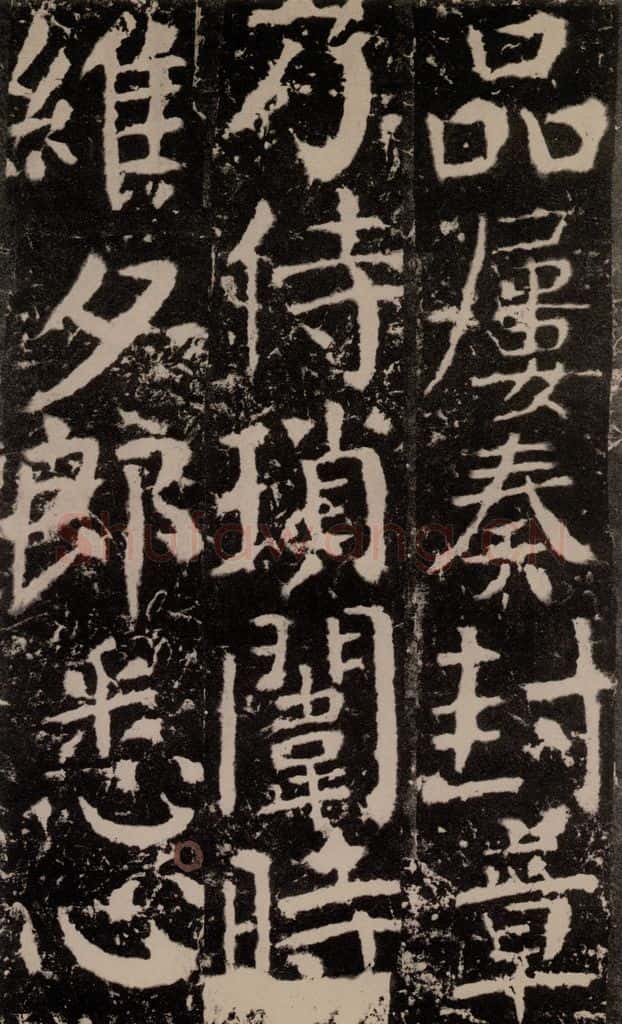 品屢奏封章
乃侍瑣闈時
維夕郎悉心
Shufawang.CN